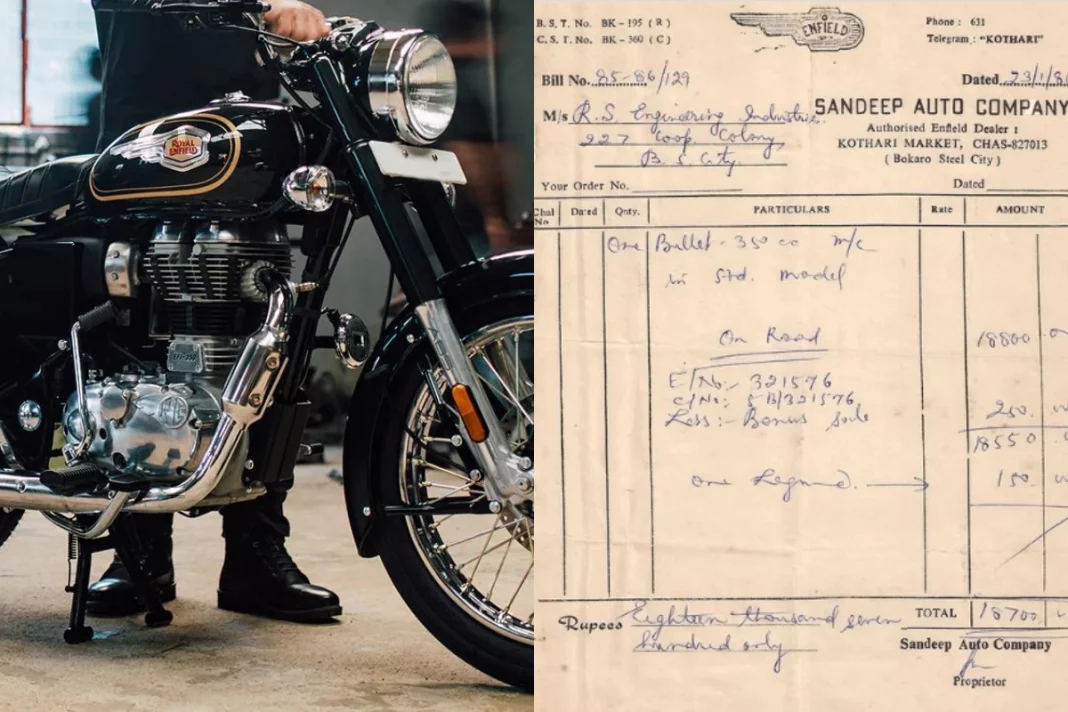 ROYAL
ENFIELD
B.S.T. No. BK-195 (R)
C.S.T. No. BK-360 (C)
ENFIELD
Phone: 631
Telegram: "KOTHARI"
Bill No. 85-86/129
Dated 23/1/8
M/s R.S. Engineering Industries.
227 Coop. Colony
B.S. City.
SANDEEP AUTO COMPANY
Authorised Enfield Dealer:
KOTHARI MARKET, CHAS-827013
(Bokaro Steel City)
Your Order No.
Dated
Chal No Dated Qnty. PARTICULARS Rate AMOUNT
One Bullet - 350 cc m/c
in Std. model
On Road 18800
E/No:- 321576
C/No:- 5B/321576
Less:- Bonus Sale 250
18550
One Legguard. 150
Rupees Eighteen thousand seven
hundred only
TOTAL 18700
Sandeep Auto Company
Proprietor